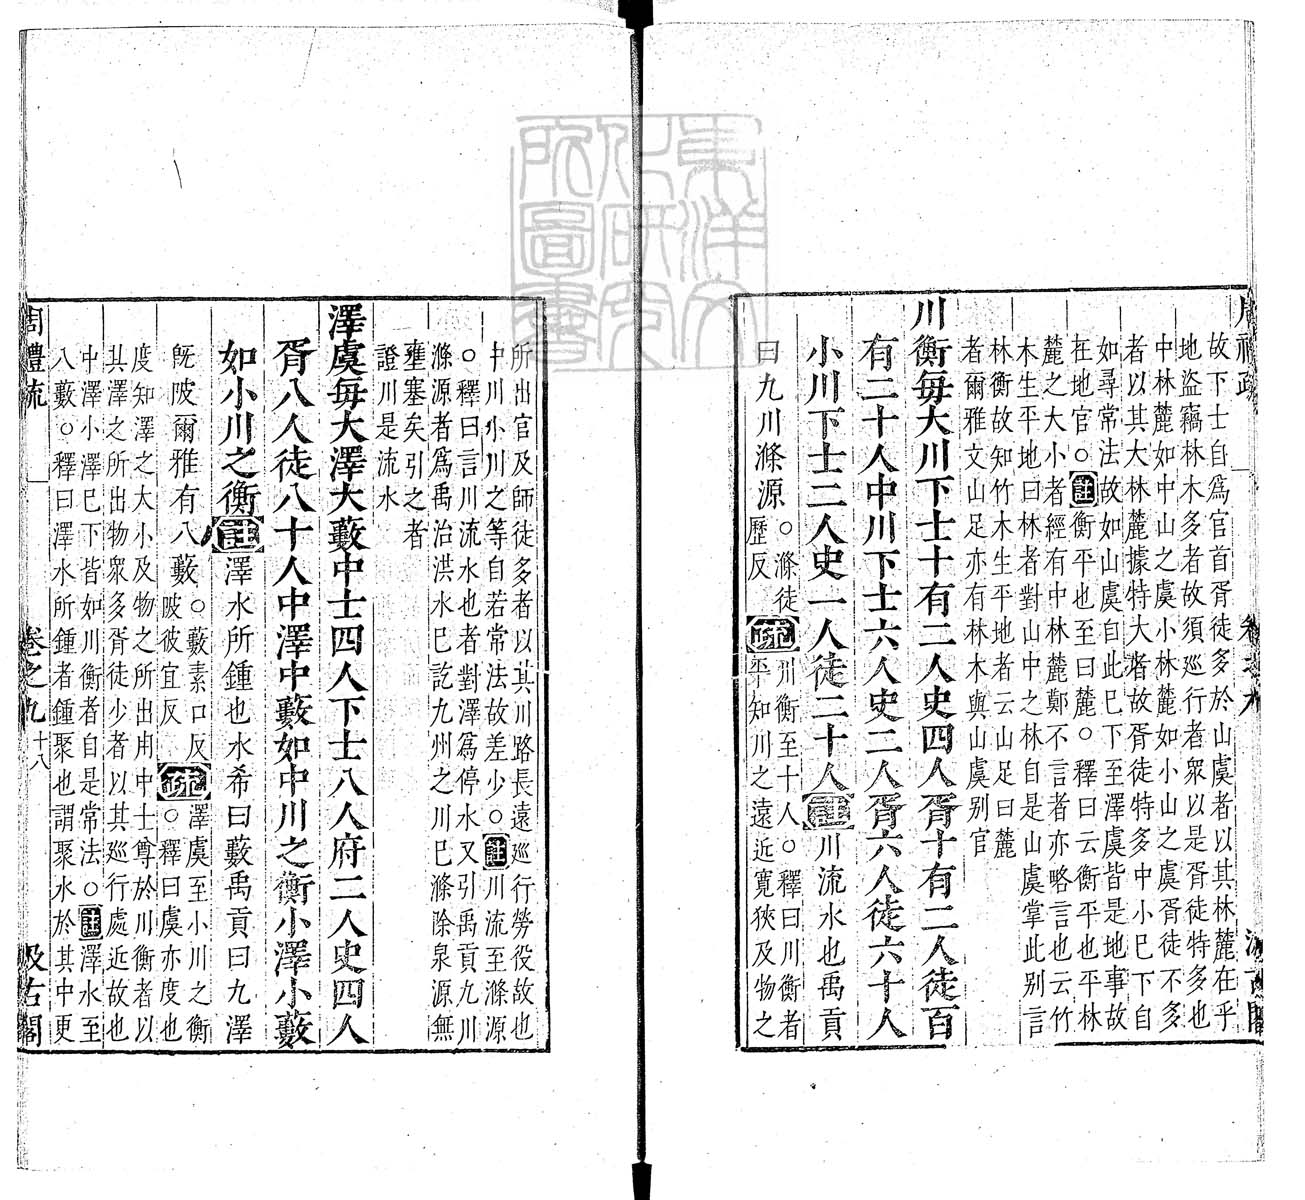 故下士自爲官首胥徒多於山虞者以其林麓在乎
地盜竊林木多者故須巡行者衆以是胥徒特多也
中林麓如中山之虞小林麓如小山之虞胥徒不多
者以其大林麓據特大者故胥徒特多中小巳下自
如尋常法故如山虞自此巳下至澤虞皆是地事故
在地官○註衡平也至曰麓○釋曰云衡平也平林
麓之大小者經有中林麓鄭不言者亦略言也云竹
木生平地曰林者對山中之林自是山虞掌此别言
林衡故知竹木生平地者云山足曰麓
者爾雅文山足亦有林木與山虞别官
川衡每大川下士十有二人史四人胥十有二人徒百
有二十人中川下士六人史二人胥六人徒六十人
小川下士二人史一人徒二十人註川流水也禹貢
曰九川滌源○滌徒歷反疏川衡至十人○釋曰川衡者平知川之遠近寬狹及物之
所出官及師徒多者以其川路長遠巡行勞役故也
中川小川之等自若常法故差少○註川流至滌源
○釋曰言川流水也者對澤爲停水又引禹貢九川
滌源者爲禹治洪水巳訖九州之川巳滌除泉源無
壅塞矣引之者
證川是流水
澤虞每大澤大藪中士四人下士八人府二人史四人
胥八人徒八十人中澤中藪如中川之衡小澤小藪
如小川之衡註澤水所鍾也水希曰藪禹貢曰九澤
旣陂爾雅有八藪○藪素口反陂彼宜反疏澤虞至小川之衡○釋曰虞亦度也
度知澤之大小及物之所出用中士尊於川衡者以
其澤之所出物衆多胥徒少者以其巡行處近故也
中澤小澤巳下皆如川衡者自是常法○註澤水至
八藪○釋曰澤水所鍾者鍾聚也謂聚水於其中更
周禮疏 卷之九 十八 汲古閣